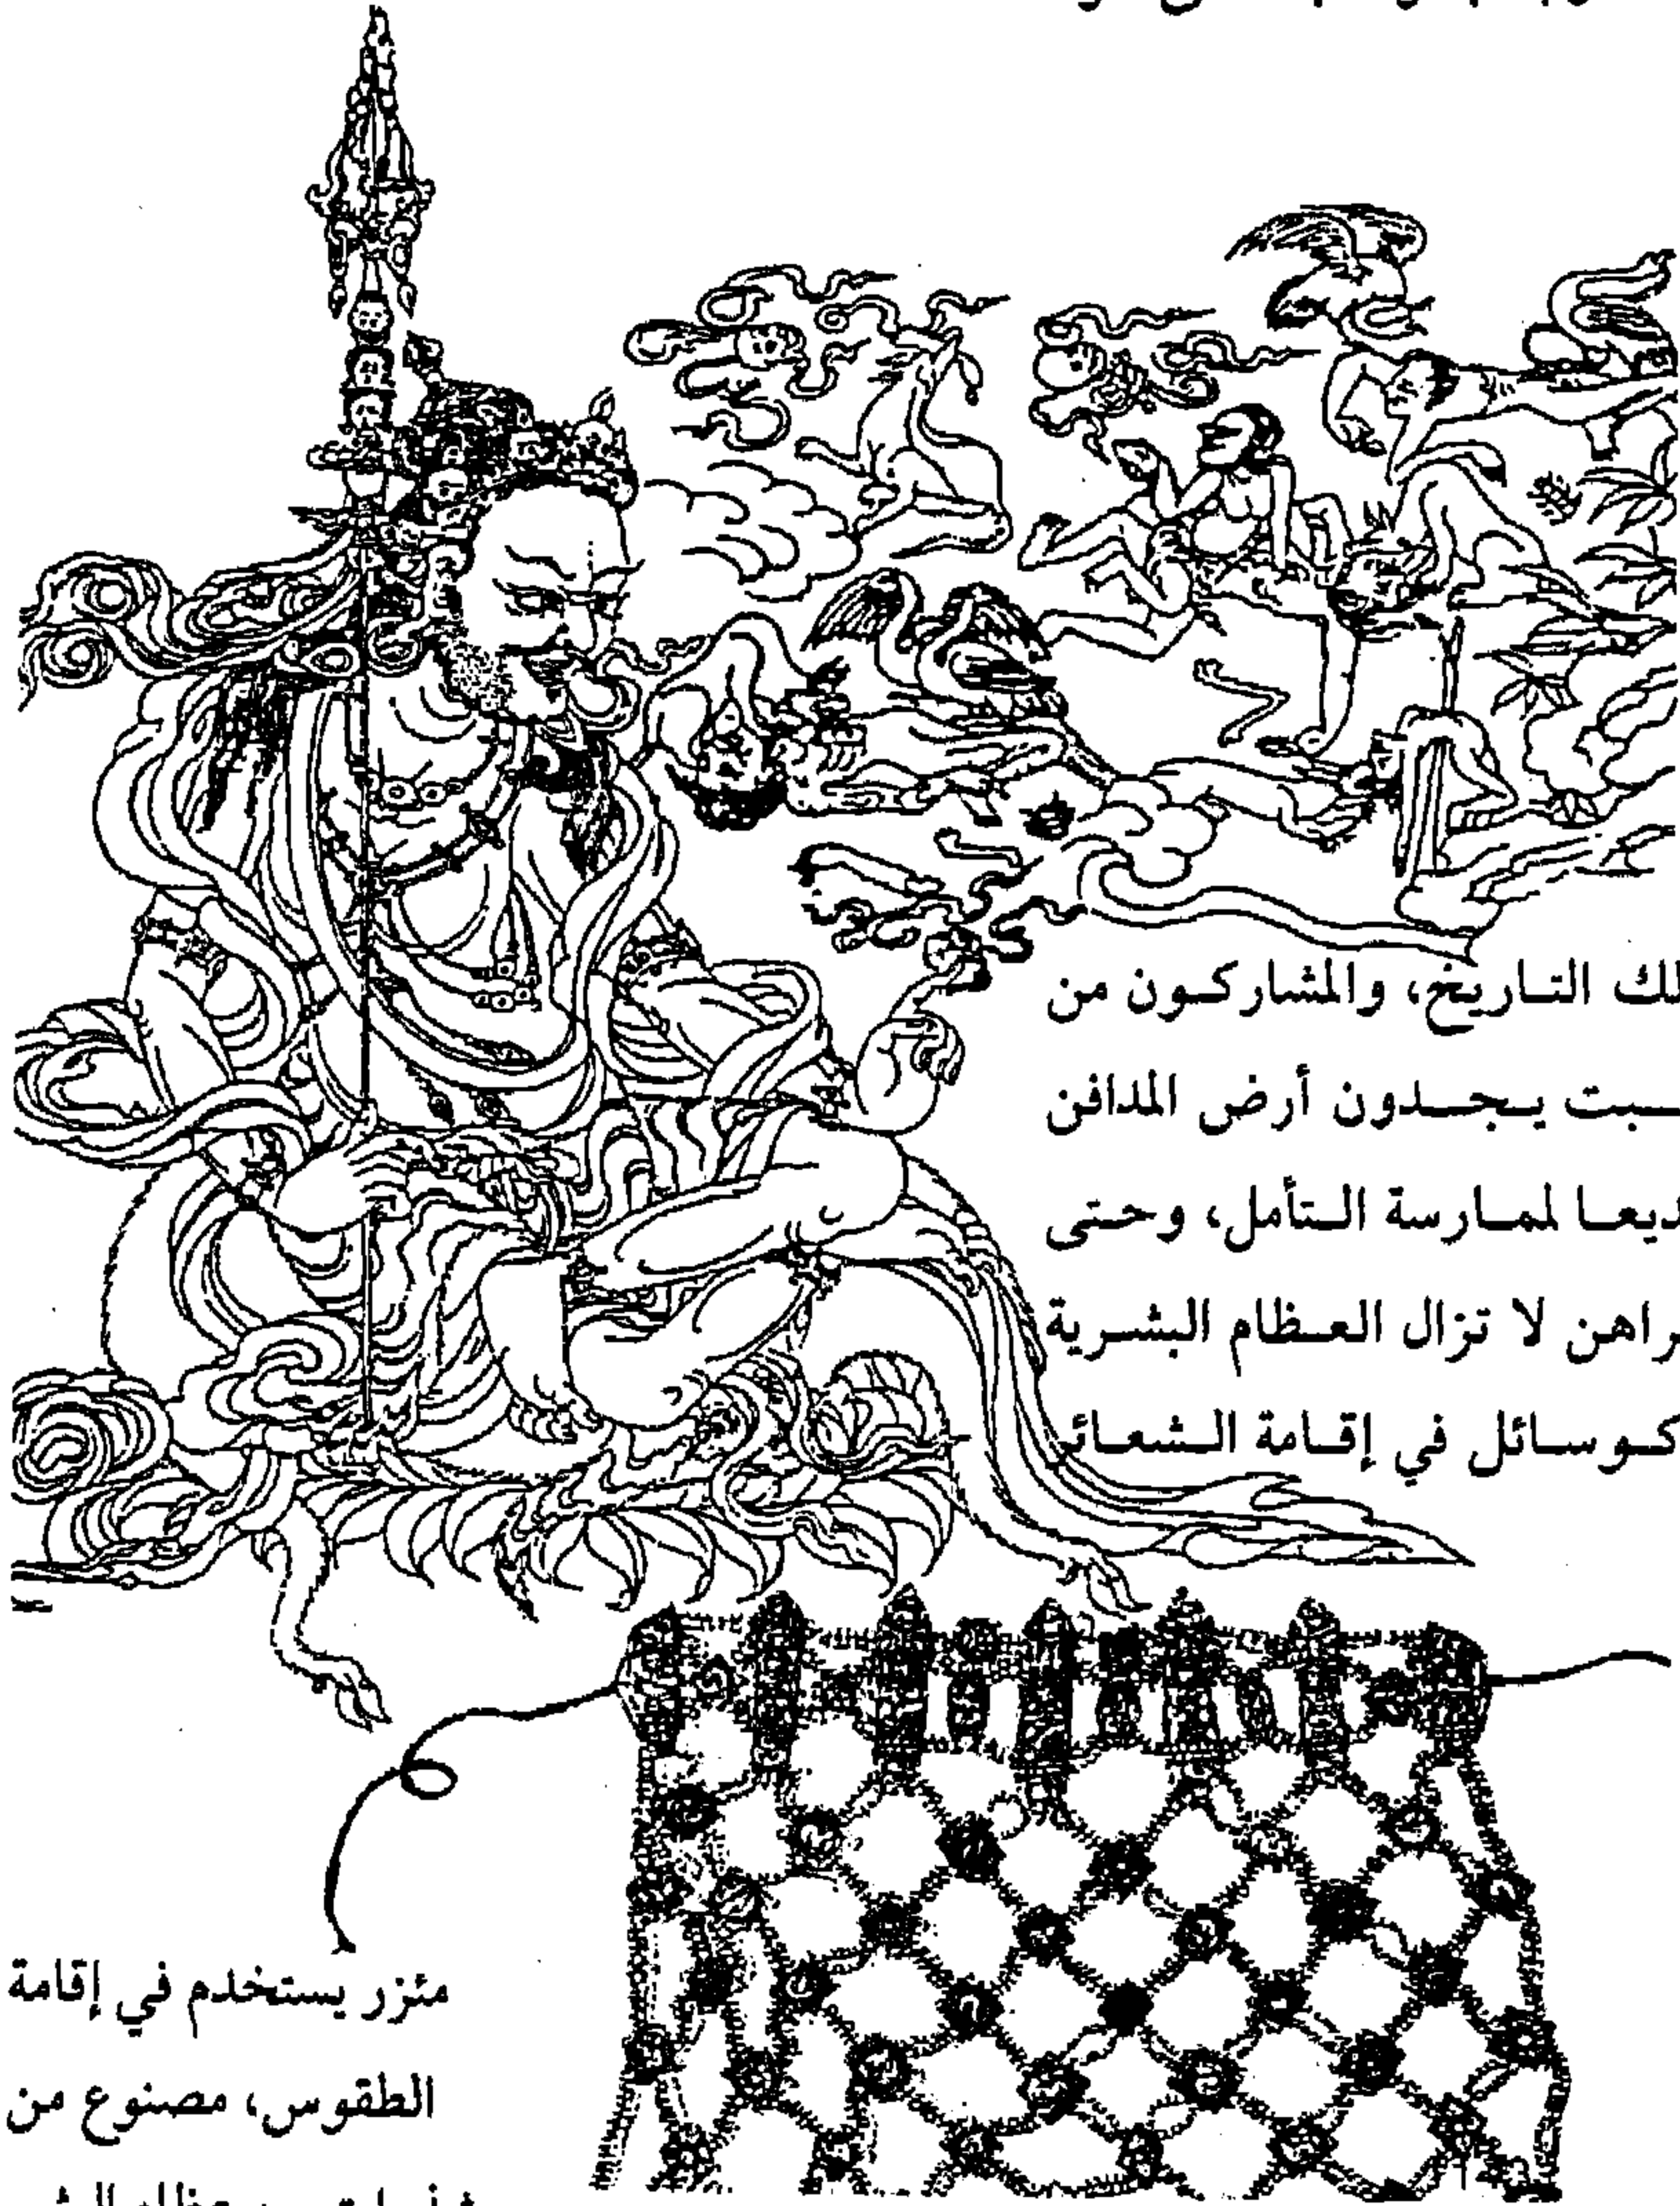 التاريخ، والمشاركون من
يجدون أرض المدافن
لممارسة التأمل، وحتى
لا تزال العظام البشرية
كوسائل في إقامة الشعائر
مئزر يستخدم في إقامة
الطقوس، مصنوع من